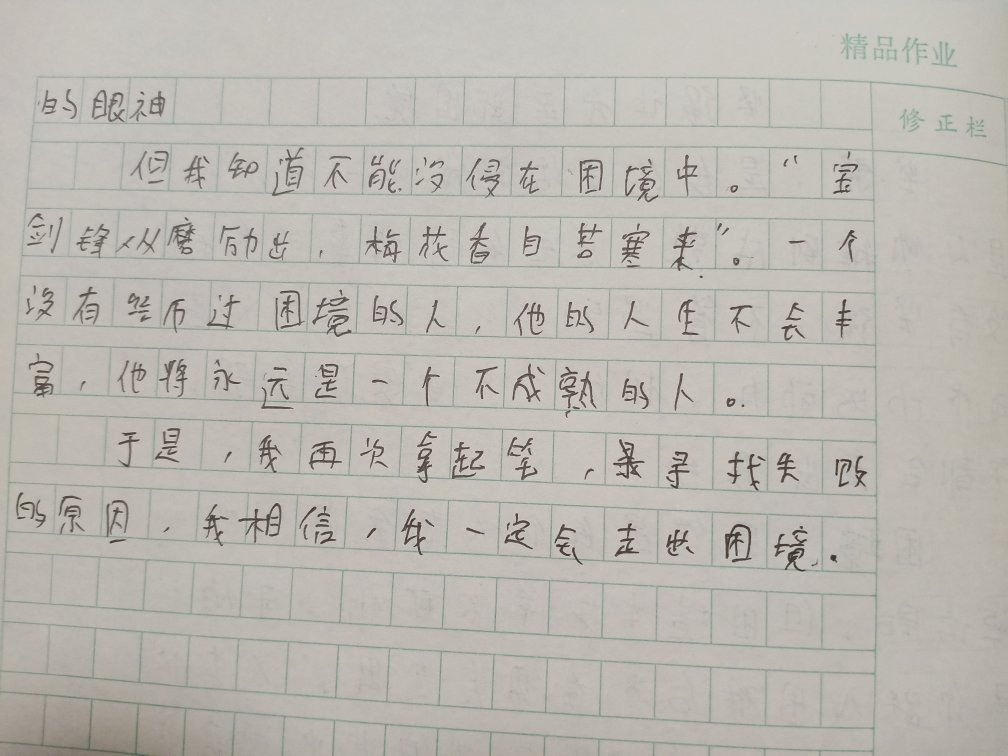 精品作业
修正栏
的眼神
但我知道不能没侵在困境中。“宝
剑锋从磨励出，梅花香自苦寒来”。一个
没有经历过困境的人，他的人生不会丰
富，他将永远是一个不成熟的人。
于是，我再次拿起笔，寻找失败
的原因，我相信，我一定会走出困境.